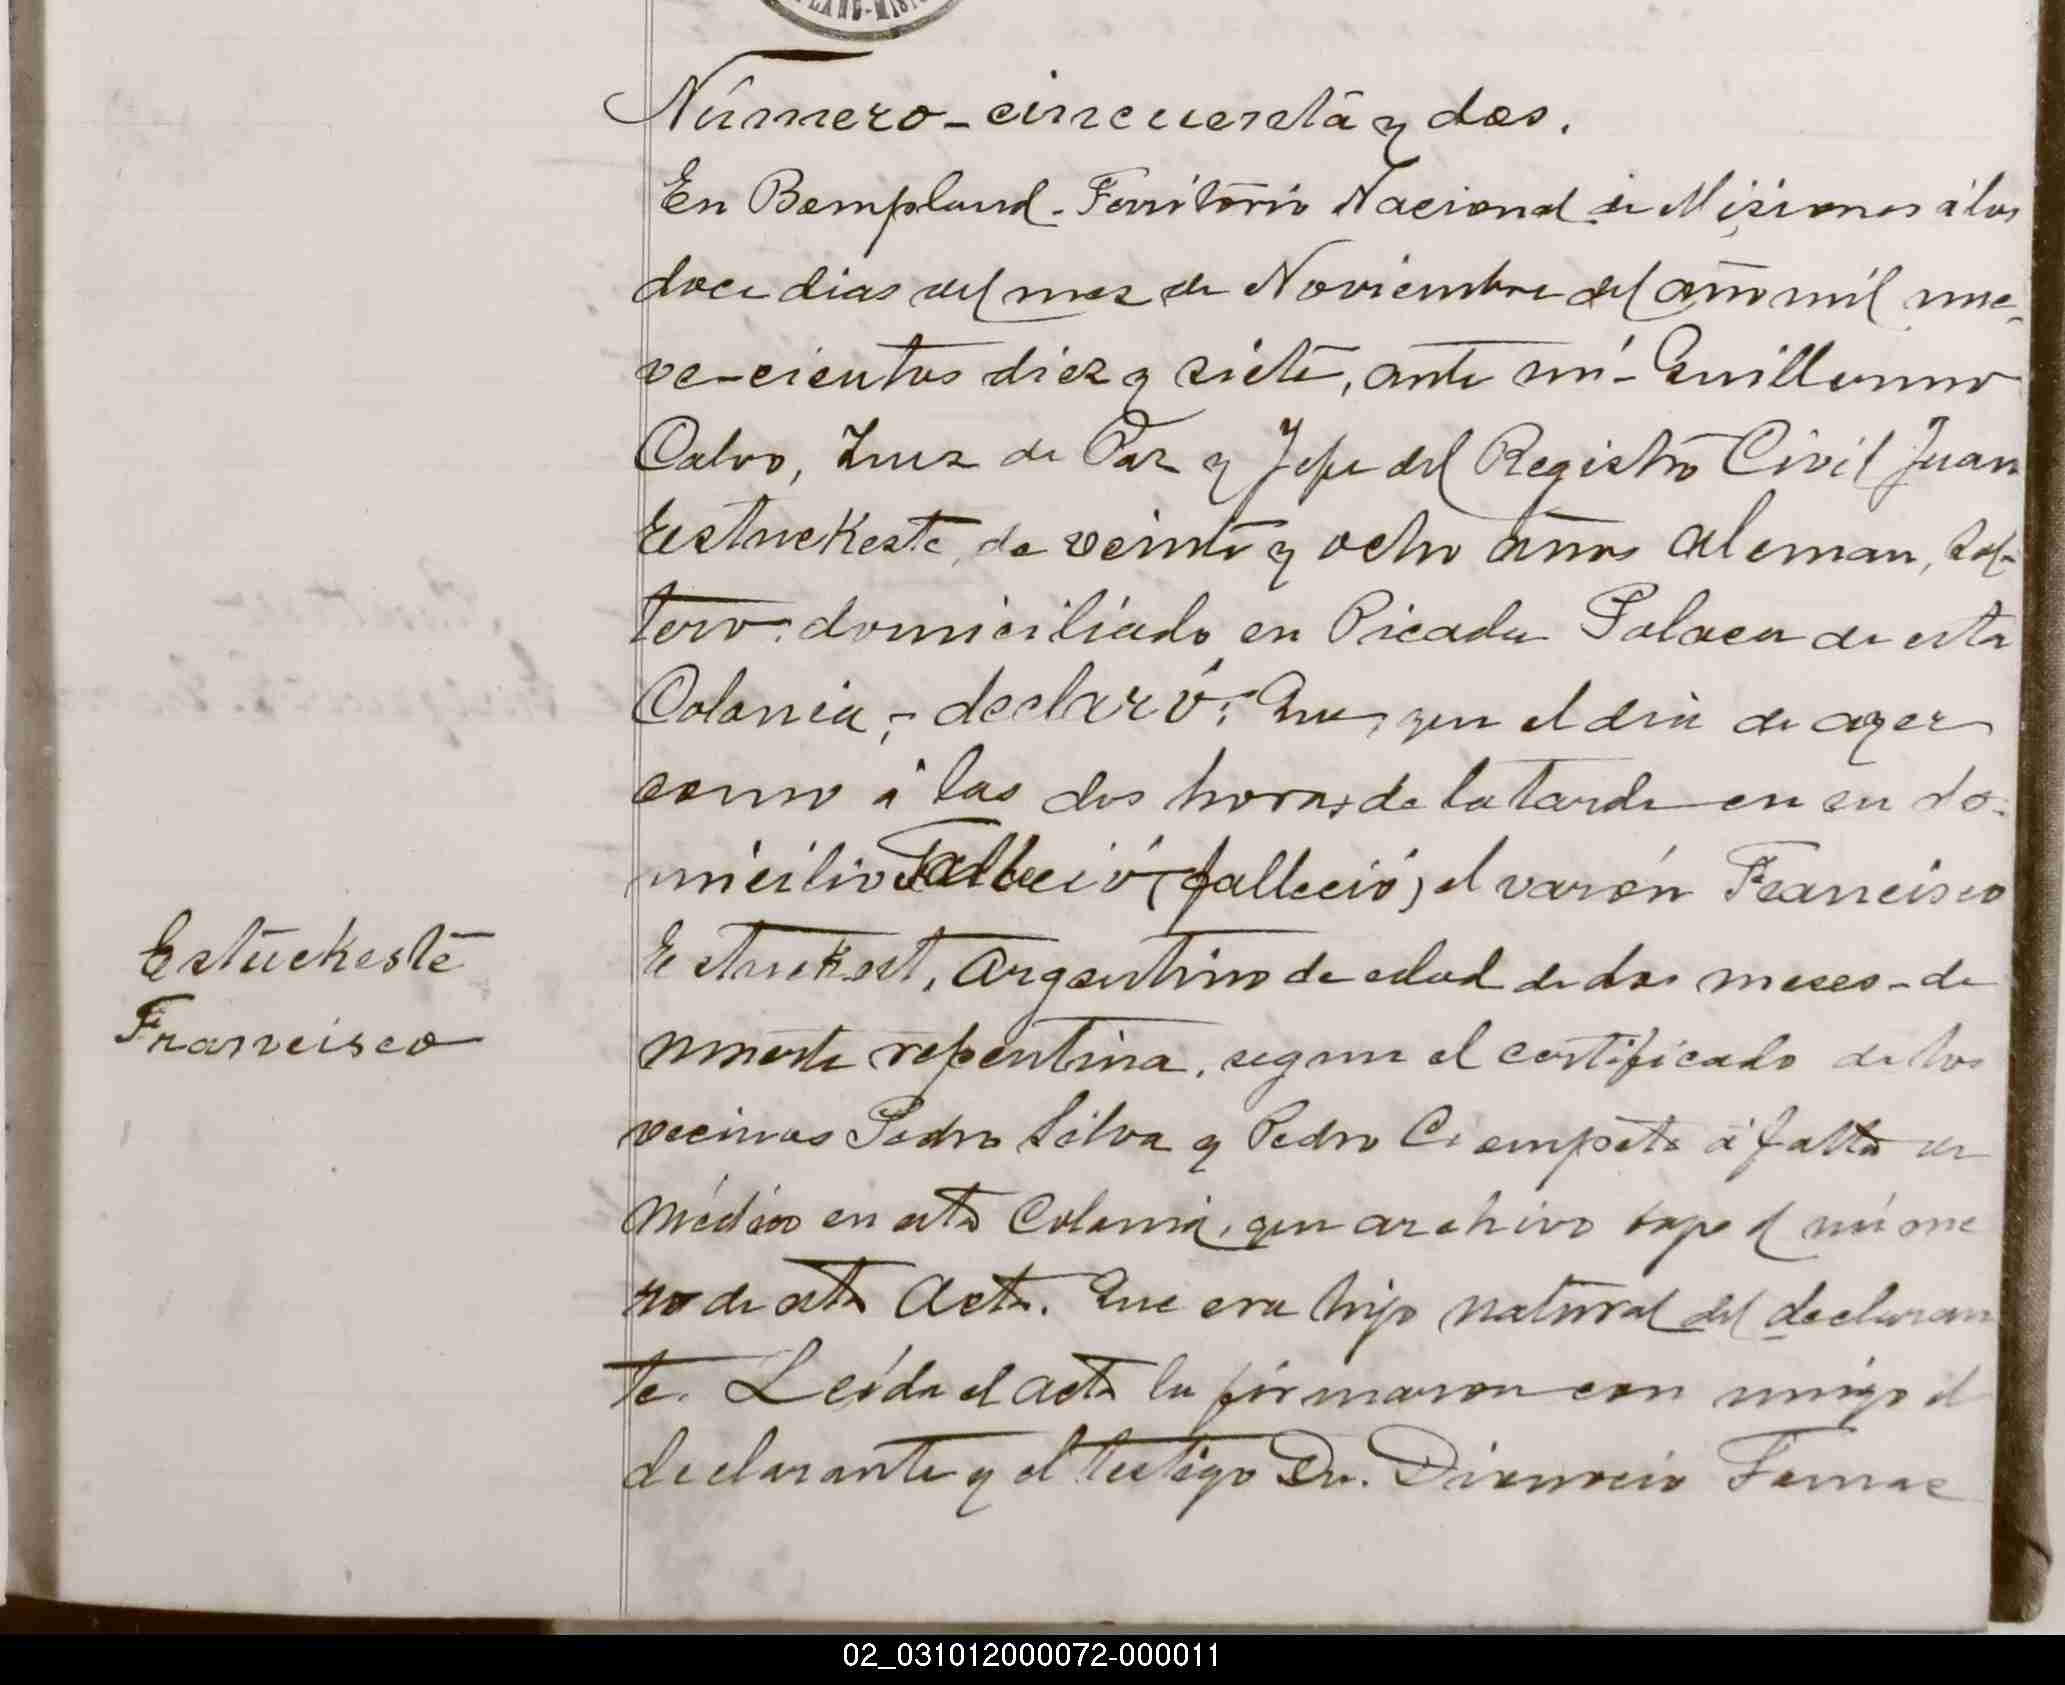 PLAND-MISIO
Número-cincuenta y dos.
En Bompland-Territorio Nacional de Misiones á los
doce dias del mes de Noviembre del año mil nue-
ve-cientos diez y siete, ante mí-Guillermo
Calvo, Juez de Paz y Jefe del Registro Civil Juan
Estuckeste, de veinte y ocho años aleman, sol-
tero: domiciliado en Picada Polaca de esta
Colonia,- declaró: Que, que el dia de ayer
como á las dos horas de la tarde en su do-
micilio Falleció (falleció) el varón Francisco
Estuckest, argentino de edad de dos meses-de
muerte repentina, segun el certificado de los
vecinos Pedro Silva y Pedro á falta de
médico en esta Colonia, que archivo bajo el núme
ro de esta acta. Que era hijo natural del declaran
te. Leída el acta la firmaron con migo el
declarante y el testigo Dn. Dionocio
Estuckeste
Francisco
02_031012000072-000011